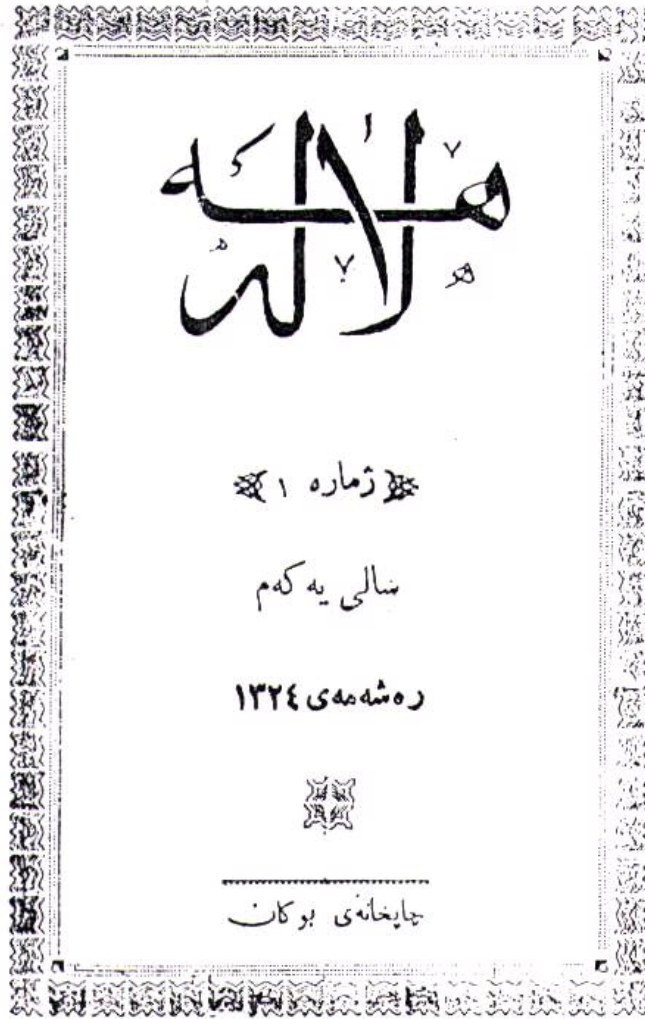 هەلالە
ژماره ١
سالی یه کەم
ره شەمەی ١٣٢٤
چاپخانەی بو کان